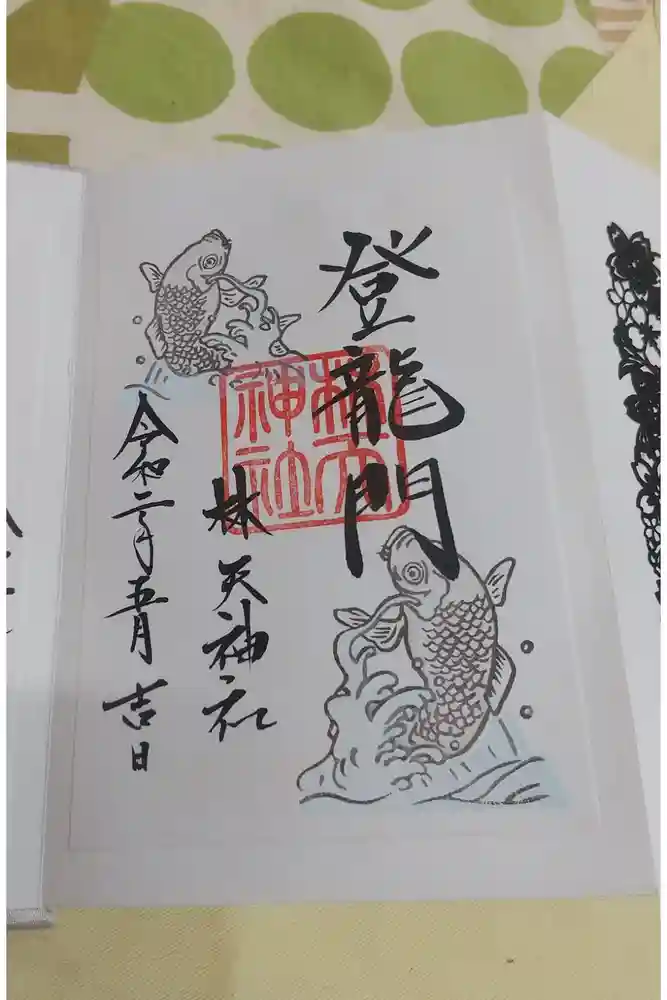 登龍門
林天神社
林天神社
令和二年五月吉日